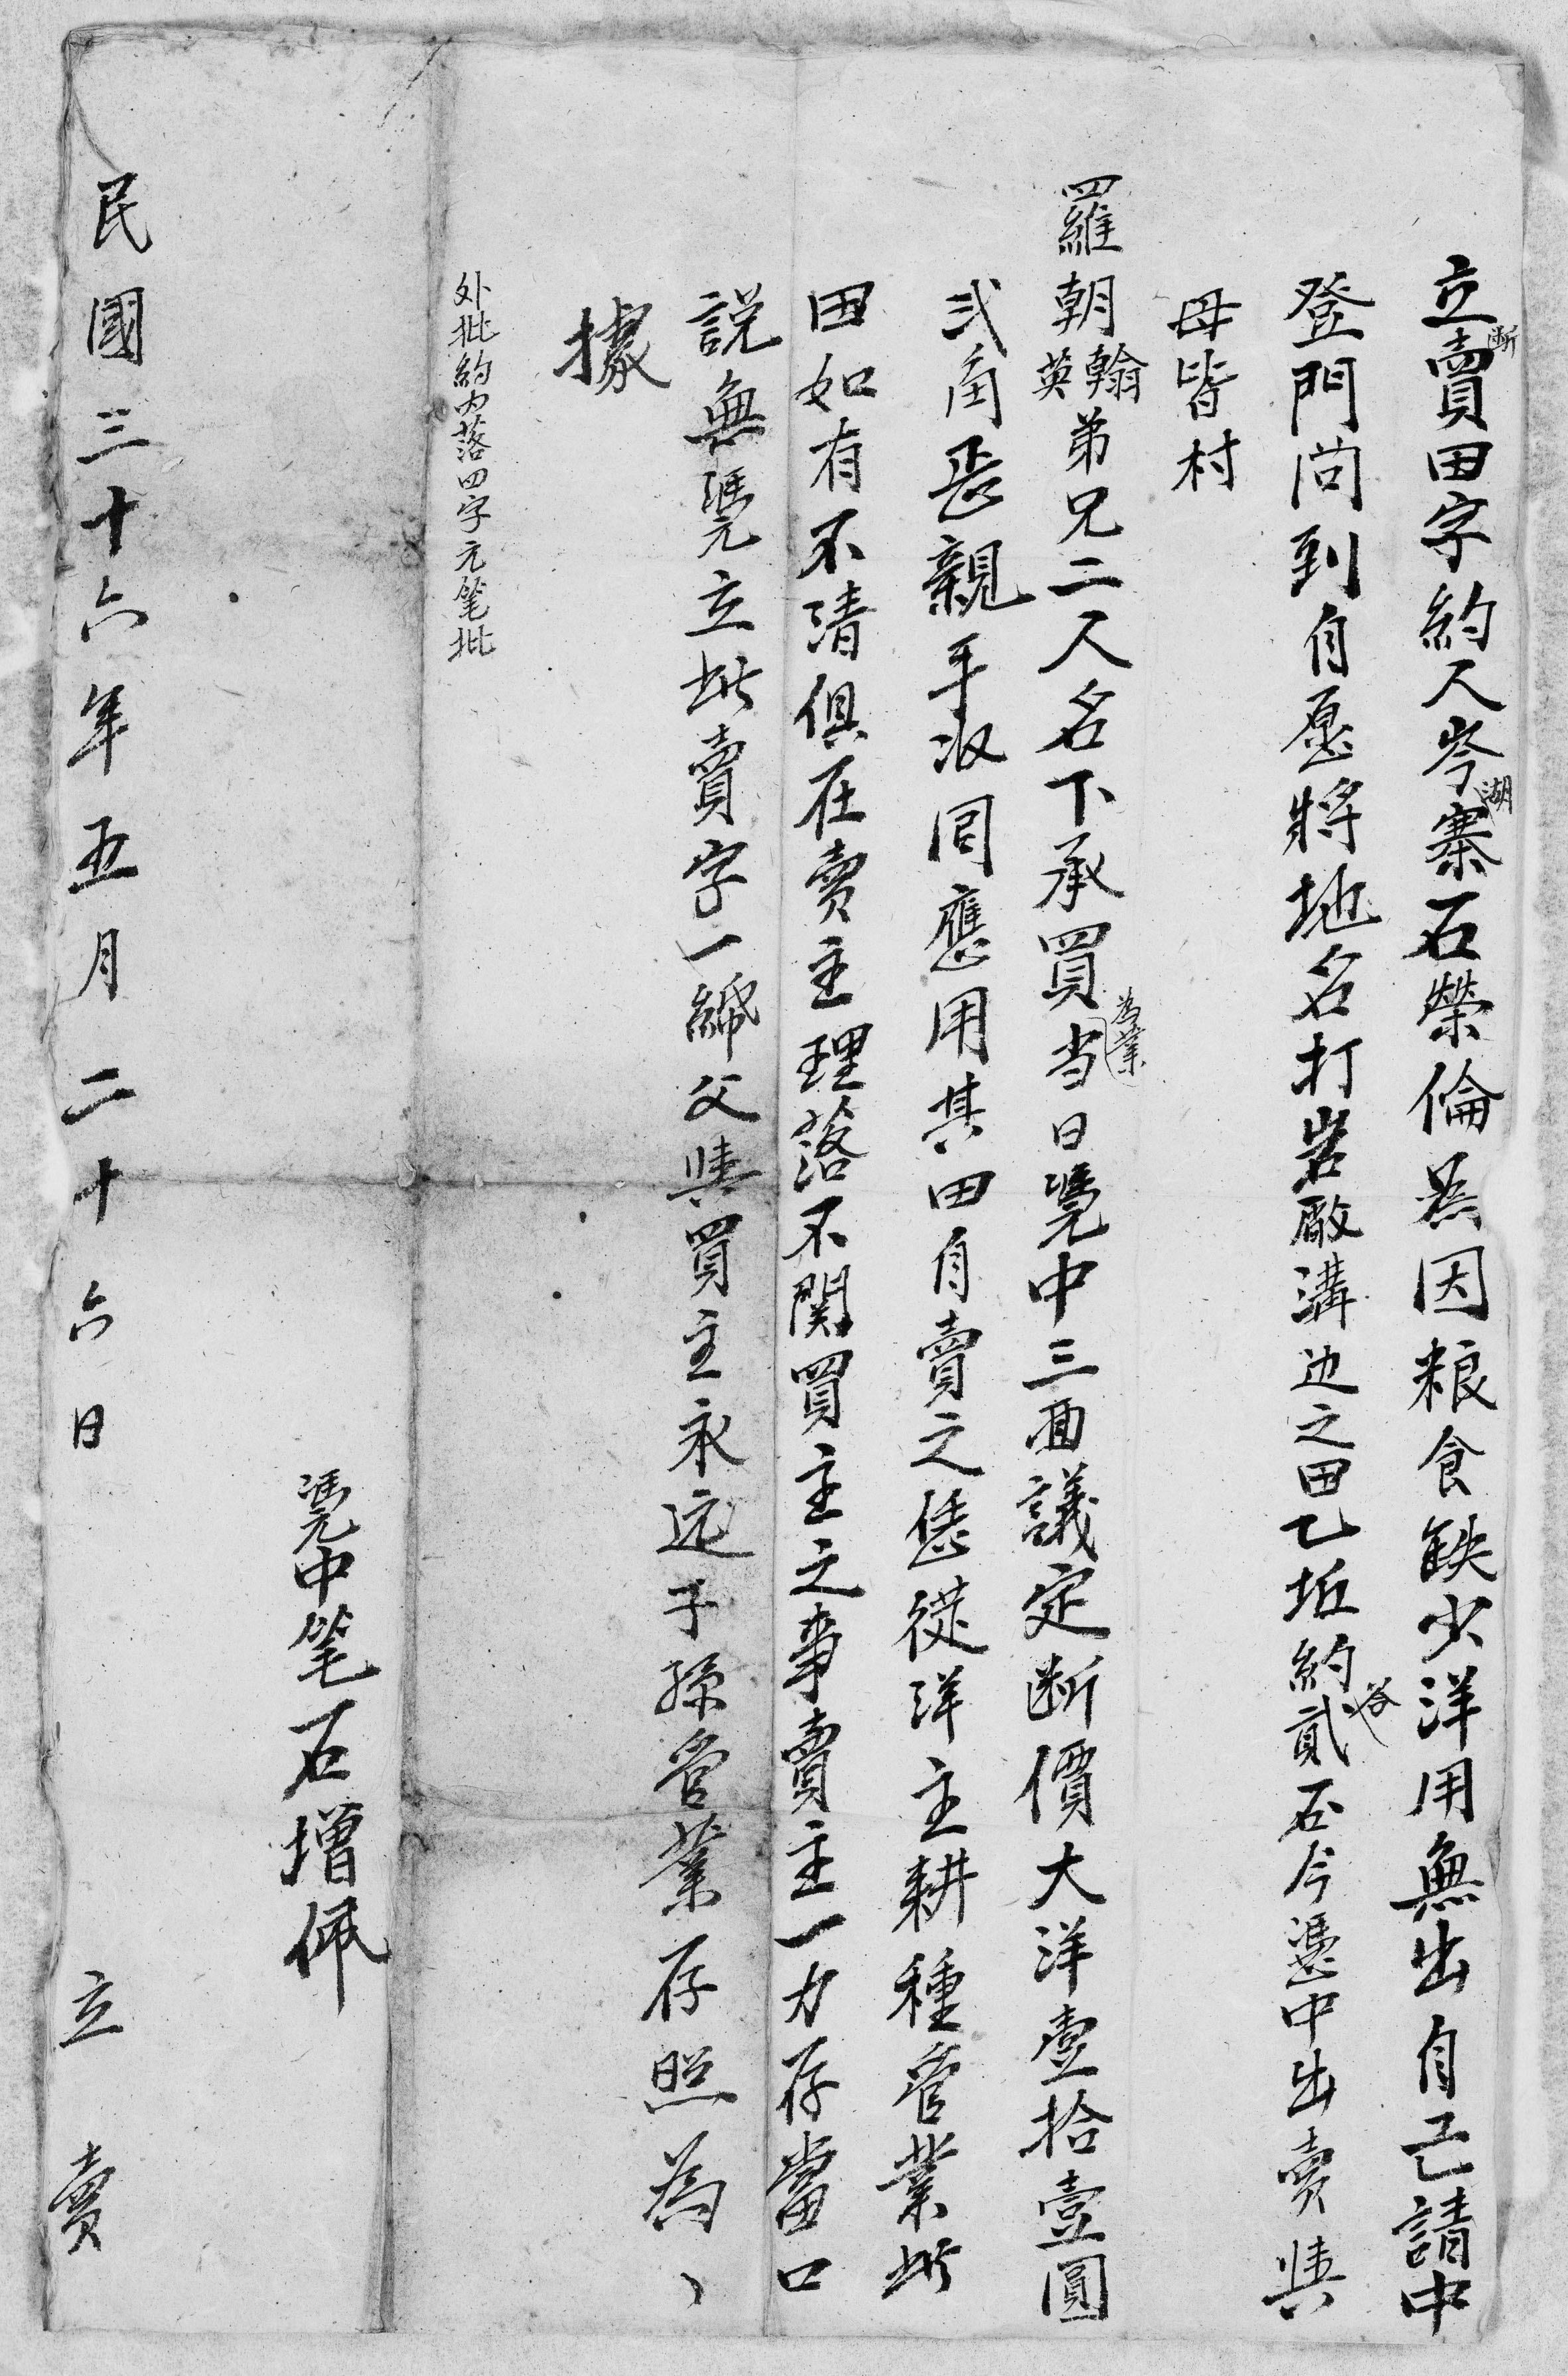 立断賣田字約人岑湖寨石榮倫為因粮食缺少洋用無出自己請中
登門问到自愿將地名打岩廠溝边之田乙坵約谷貳石今憑中出賣與
母皆村
羅朝翰英弟兄二人名下承買為業当日凴中三面議定断價大洋壹拾壹圓
弍角丟親手收囘應用其田自賣之後恁從洋主耕種管業此
田如有不清俱在賣主理落不関買主之事賣主一力存當口
説無凴立此賣字一紙父與買主永远子孫管業存照為
據
外批約内落四字元笔批
凴中笔石增佩
民國三十六年五月二十六日 立 賣